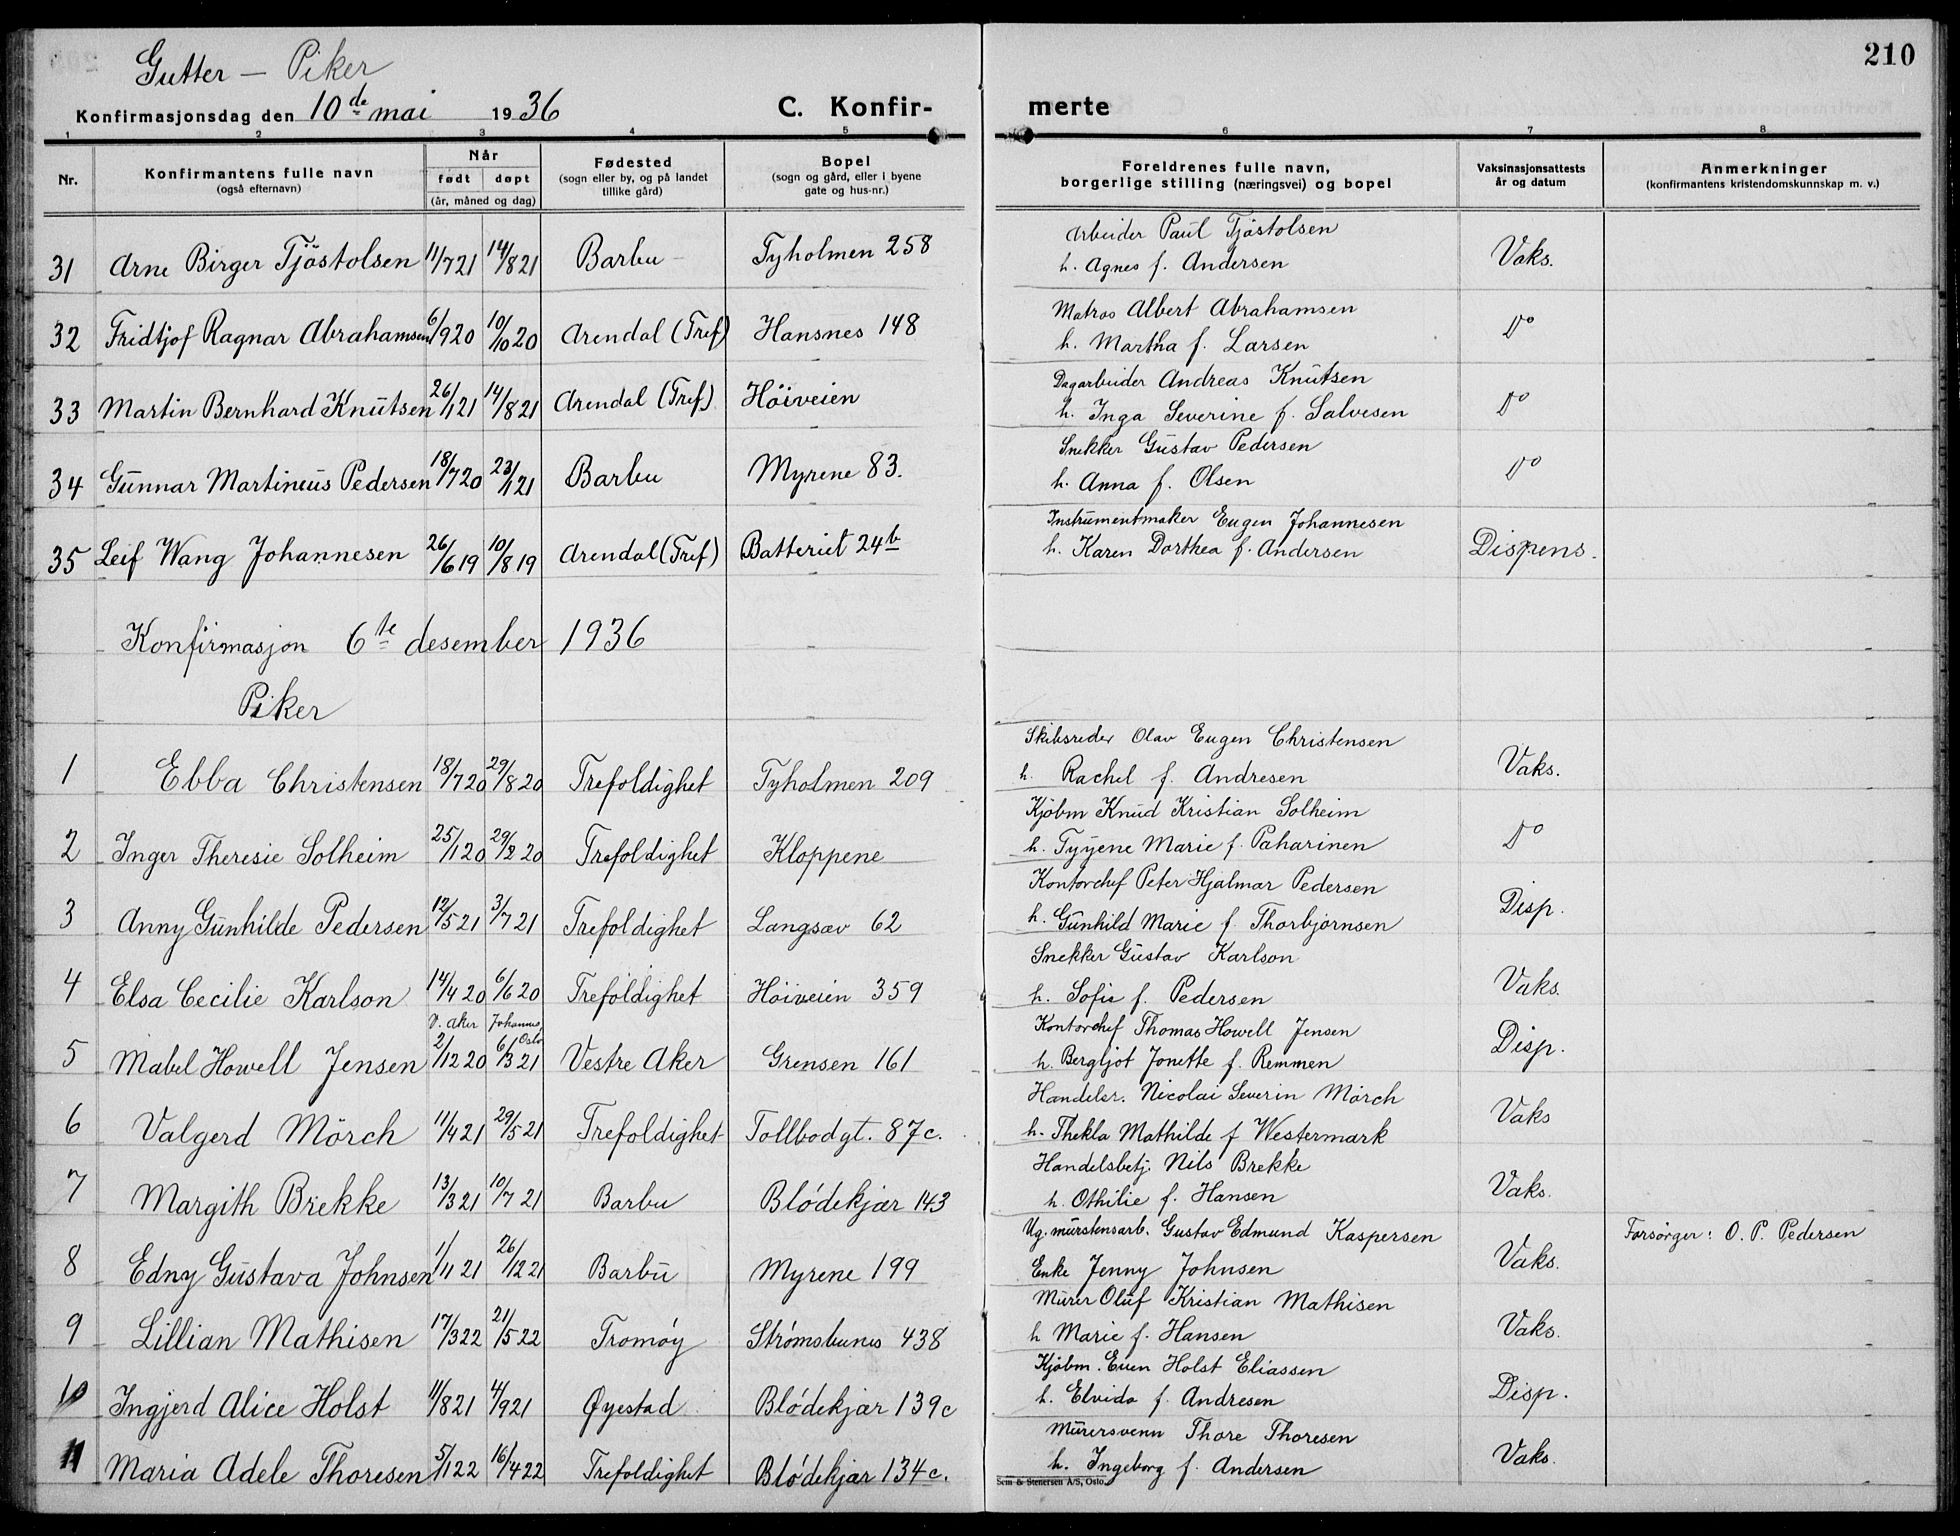 Gutter — Piker
210
Konfirmasjonsdag den 10de mai 1936
C. Konfir-
merte
1 2 3 4 5 6 7 8
Nr.
Konfirmantens fulle navn
(også efternavn)
Når
født døpt
(år, måned og dag)
Fødested
(sogn eller by, og på landet
tillike gård)
Bopel
(sogn og gård, eller i byene
gate og hus-nr.)
Foreldrenes fulle navn,
borgerlige stilling (næringsvei) og bopel
Vaksinasjonsattests
år og datum
Anmerkninger
(konfirmantens kristendomskunnskap m. v.)
Arbeider Paul Tjøstolsen
31 Arne Birger Tjöstolsen 11/7 21 14/8 21 Barbu Tyholmen 258 h. Agnes f. Andersen Vaks.
Matros Albert Abrahamsen
32 Fridtjof Ragnar Abrahamsen 6/9 20 10/10 20 Arendal (Tref) Hansnes 148 h. Martha f. Larsen Do
Dagarbeider Andreas Knutsen
33 Martin Bernhard Knutsen 26/1 21 14/8 21 Arendal (Tref) Höiveien h. Inga Severine f. Salvesen Do
Snekker Gustav Pedersen
34 Gunnar Martineus Pedersen 18/7 20 23/1 21 Barbu Myrene 83. h. Anna f. Olsen Do
Instrumentmaker Eugen Johannesen
35 Leif Wang Johannesen 26/6 19 10/8 19 Arendal (Tref) Batteriet 24b h. Karen Dorthea f. Andersen Dispens.
Konfirmasjon 6te desember 1936
Piker
Skibsreder Olav Eugen Christensen
1 Ebba Christensen 18/7 20 29/8 20 Trefoldighet Tyholmen 209 h. Rachel f. Andresen Vaks.
Kjøbm Knud Kristian Solheim
2 Inger Theresie Solheim 25/1 20 29/2 20 Trefoldighet Kloppene h. Tyyene Marie f. Paharinen Do
Kontorchef Peter Hjalmar Pedersen
3 Anny Gunhilde Pedersen 12/5 21 3/7 21 Trefoldighet Langsæv 62 h. Gunhild Marie f. Thorbjørnsen Disp.
Snekker Gustav Karlson
4 Elsa Cecilie Karlson 14/4 20 6/6 20 Trefoldighet Höiveien 359 h. Sofie f. Pedersen Vaks.
V. Aker Johannes, Oslo Kontorchef Thomas Howell Jensen
5 Mabel Howell Jensen 2/12 20 6/3 21 Vestre Aker Grensen 161 h. Bergljot Jonette f. Remmen Disp.
Handelsr. Nicolai Severin Mörch
6 Valgerd Mörch 11/4 21 29/5 21 Trefoldighet Tollbodgt. 87c. h. Thekla Mathilde f Westermark Vaks
Handelsbetj. Nils Brekke
7 Margith Brekke 13/3 21 10/7 21 Barbu Blödekjær 143 h. Othilie f. Hansen Vaks.
Ug. murstensarb. Gustav Edmund Kaspersen Forsørger: O. P. Pedersen
8 Edny Gustava Johnsen 1/11 21 26/12 21 Barbu Myrene 199 Enke Jenny Johnsen Vaks.
Murer Oluf Kristian Mathisen
9 Lillian Mathisen 17/3 22 21/5 22 Tromøy Strømsbunes 438 h Marie f. Hansen Vaks.
Kjøbm. Even Holst Eliassen
10 Ingjerd Alice Holst 11/8 21 4/9 21 Øyestad Blödekjær 139c h. Elvida f. Andresen Disp.
Murersvenn Thore Thoresen
11 Maria Adele Thoresen 5/1 22 16/4 22 Trefoldighet Blödekjær 134c. h. Ingeborg f. Andersen Vaks.
Sem & Stenersen A/S, Oslo.